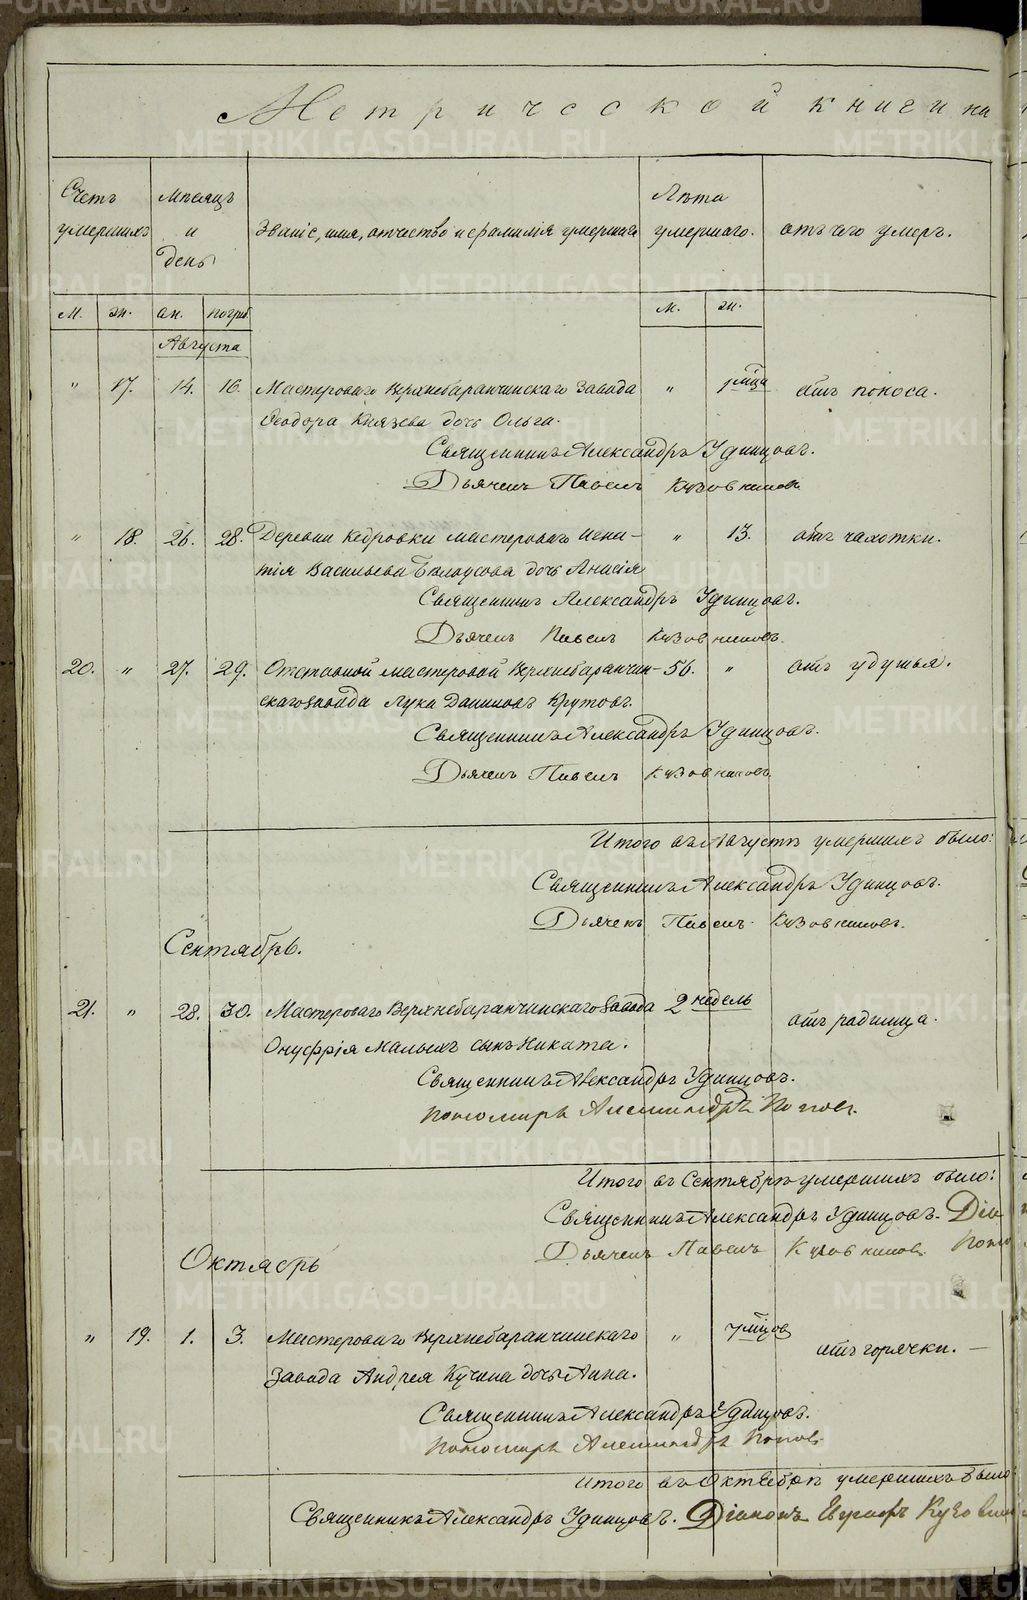 Метрической книги на
Счетъ умершихъ
Мѣсяцъ и день
Званіе, имя, отчество и фамилія умершаго
Лѣта умершаго.
отъ чего умеръ.
м. ж. см. погреб. м. ж.
Августа
" 17. 14. 16. Мастероваго Верхнебаранчинскаго Завода " 1 мѣца отъ поноса.
Ѳеодора Князева дочь Ольга.
Священникъ Александръ Удинцовъ.
Дьячекъ Павелъ Кузовниковъ
" 18. 26. 28. Деревни Кедровки мастероваго Игна- " 13. отъ чахотки.
тія Васильева Бѣлоусова дочь Анисія
Священникъ Александръ Удинцовъ.
Дьячекъ Павелъ Кузовниковъ.
20. " 27. 29. Отставной мастеровой Верхнебаранчин- 56. " отъ удушья.
скаго завода Лука Даниловъ Крутовъ.
Священникъ Александръ Удинцовъ.
Дьячекъ Павелъ Кузовниковъ
Итого въ Августѣ умершихъ было:
Священникъ Александръ Удинцовъ.
Дьячекъ Павелъ Кузовниковъ.
Сентябрь.
21. " 28. 30. Мастероваго Верхнебаранчинскаго Завода 2 недель отъ родимца.
Онуфрія Малыхъ сынъ Никита.
Священникъ Александръ Удинцовъ.
Пономарь Александръ Поповъ.
Итого въ Сентябрѣ умершихъ было:
Священникъ Александръ Удинцовъ. Діа
Дьячекъ Павелъ Кузовниковъ Поно
Октябрь
" 19. 1. 3. Мастероваго Верхнебаранчинскаго " 7 мѣцов отъ горячки. —
Завода Андрея Кучина дочь Анна.
Священникъ Александръ Удинцовъ.
Пономарь Александръ Поповъ
Итого въ Октябрѣ умершихъ было:
Священникъ Александръ Удинцовъ. Діаконъ Евграфъ Кузовни
METRIKI.GASO-URAL.RU